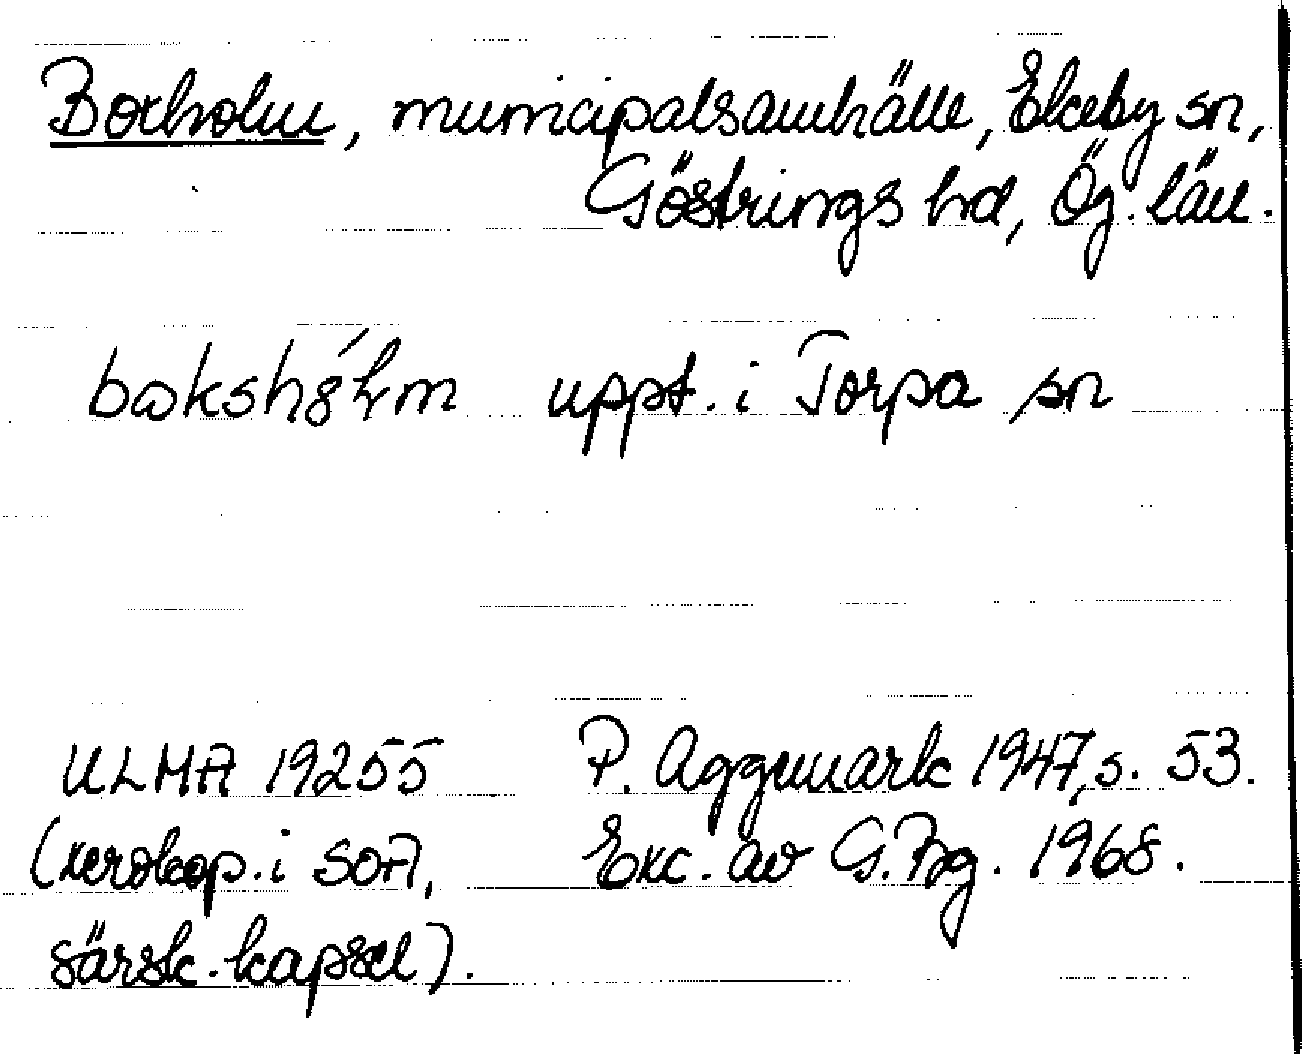 Boxholm, municipalsamhälle, Ekeby sn,
Göstrings hd, Ög. län.
uppt. i Torpa sn
ULMA 19255 P. Aggmark 1947, s. 53.
(xerokop. i SOA, Exc. av G.Bg. 1968.
särsk. kapsel).